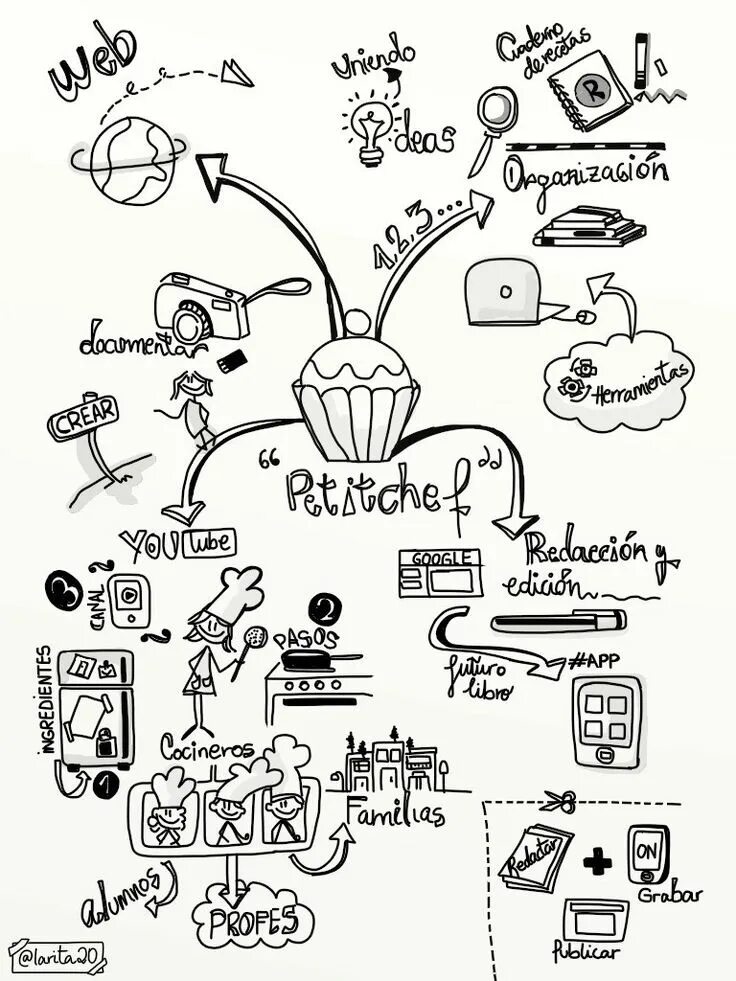 Web
Uniendo
Ideas
Cuaderno
de recetas
R
1,2,3...
Organización
Herramientas
documentar
CREAR
"Petitchef"
YOUTube
Redacción y
edición
GOOGLE
futuro
libro
#APP
3
CANAL
2
PASOS
INGREDIENTES
1
Cocineros
Familias
alumnos
PROFES
Redactar
+
ON
Grabar
Publicar
@larita20